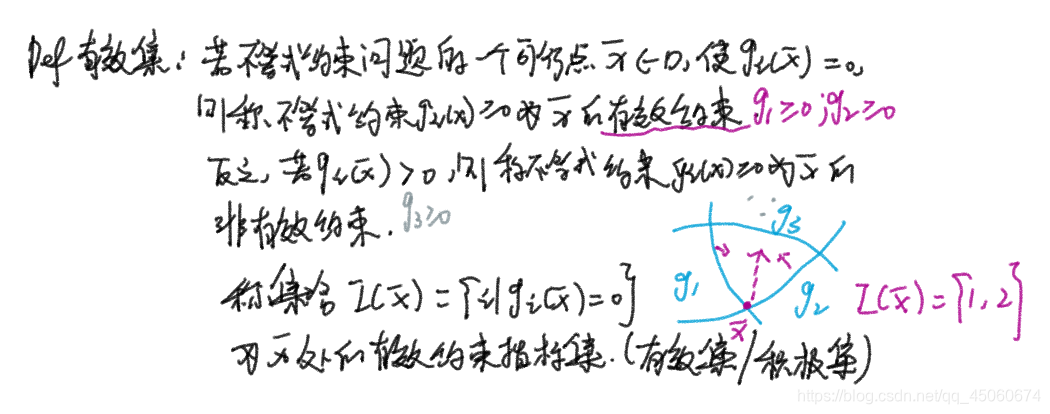 Def 有效集：若不等式约束问题的一个可行点 x̄∈D, 使 gᵢ(x̄)=0,
则称不等式约束 gᵢ(x)≥0 为 x̄ 的有效约束 g₁≥0; g₂≥0
反之, 若 gᵢ(x̄)>0, 则称不等式约束 gᵢ(x)≥0 为 x̄ 的
非有效约束. g₃≥0
g₃
g₁
g₂
x̄
称集合 I(x̄)={i|gᵢ(x̄)=0}
I(x̄)={1,2}
为 x̄ 处的有效约束指标集.(有效集/积极集)
https://blog.csdn.net/qq_45060674